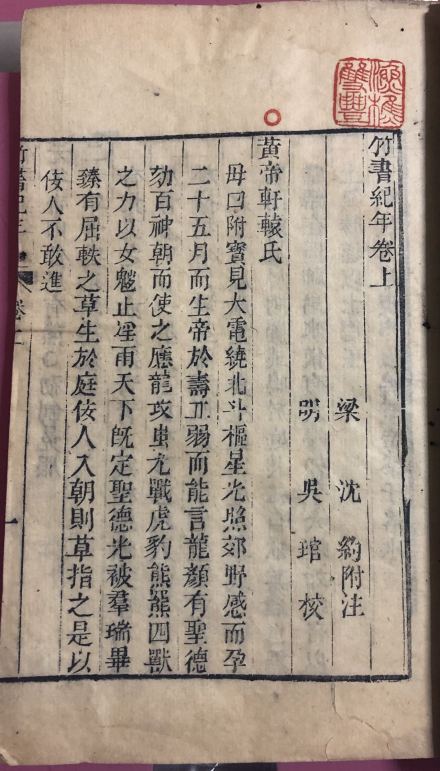 竹書紀年卷上
梁 沈 約附注
明 吳 琯 校
黃帝軒轅氏
母曰附寶見大電繞北斗樞星光照郊野感而孕
二十五月而生帝於壽丘弱而能言龍顏有聖德
劾百神朝而使之應龍攻蚩尤戰虎豹熊羆四獸
之力以女魃止淫雨天下既定聖德光被羣瑞畢
臻有屈軼之草生於庭佞人入朝則草指之是以
佞人不敢進
竹書紀年
卷上
一
雙豐